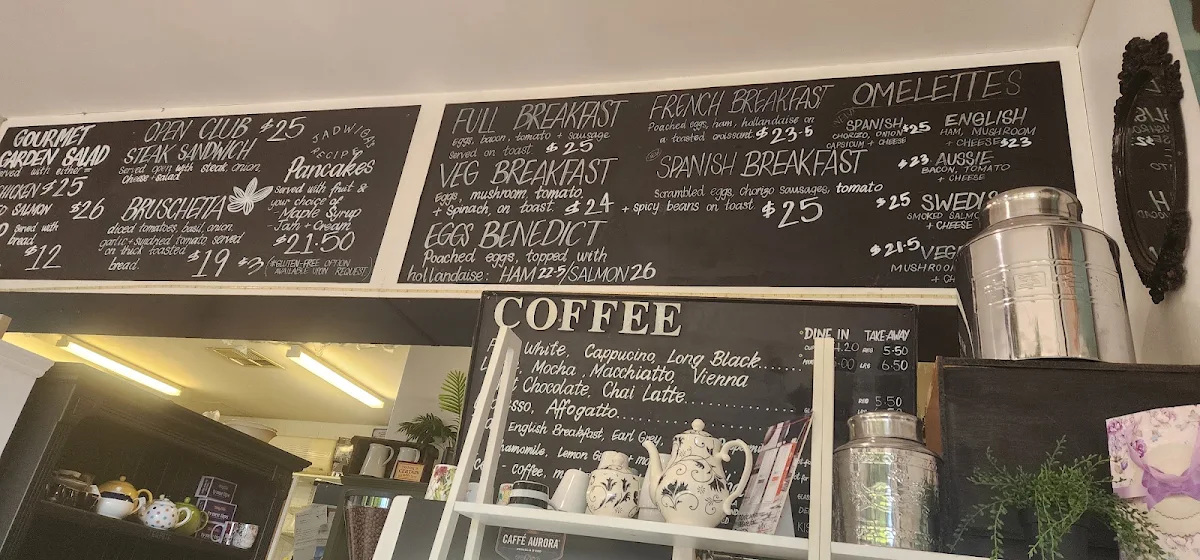 GOURMET
GARDEN SALAD
served with either
CHICKEN $25
SALMON $26
served with
bread
$12
OPEN CLUB $25
STEAK SANDWICH
served open with steak, onion,
cheese + salad
BRUSCHETTA
diced tomatoes, basil, onion,
garlic + sundried tomato, served
on thick toasted
bread. $19
JADWIGA'S
RECIPE
Pancakes
served with fruit &
your choice of
Maple Syrup
Jam + Cream
$21.50
$3 GLUTEN-FREE OPTION
AVAILABLE UPON REQUEST
FULL BREAKFAST
eggs, bacon, tomato + sausage
served on toast $25
VEG BREAKFAST
eggs, mushroom, tomato,
+ spinach, on toast. $24
EGGS BENEDICT
Poached eggs, topped with
hollandaise: HAM 22.5/SALMON 26
FRENCH BREAKFAST
Poached eggs, ham, hollandaise on
a toasted croissant $23.5
SPANISH BREAKFAST
scrambled eggs, chorizo sausages, tomato
+ spicy beans on toast $25
OMELETTES
SPANISH $25
CHORIZO, ONION
CAPSICUM + CHEESE
ENGLISH
HAM, MUSHROOM
+ CHEESE $23
$23 AUSSIE
BACON, TOMATO
+ CHEESE
$25 SWEDIS
SMOKED SALMO
+ CHEESE
$21.5 VEGE
MUSHROO
+ CH
COFFEE
DINE IN TAKE AWAY
White, Cappucino, Long Black
4.20 REG 5.50
Mocha, Macchiatto, Vienna
LRG 6.50
Chocolate, Chai Latte
Affogatto
5.50
LRG 6.50
English Breakfast, Earl Grey,
Lemon
Coffee,
CAFFÈ AURORA